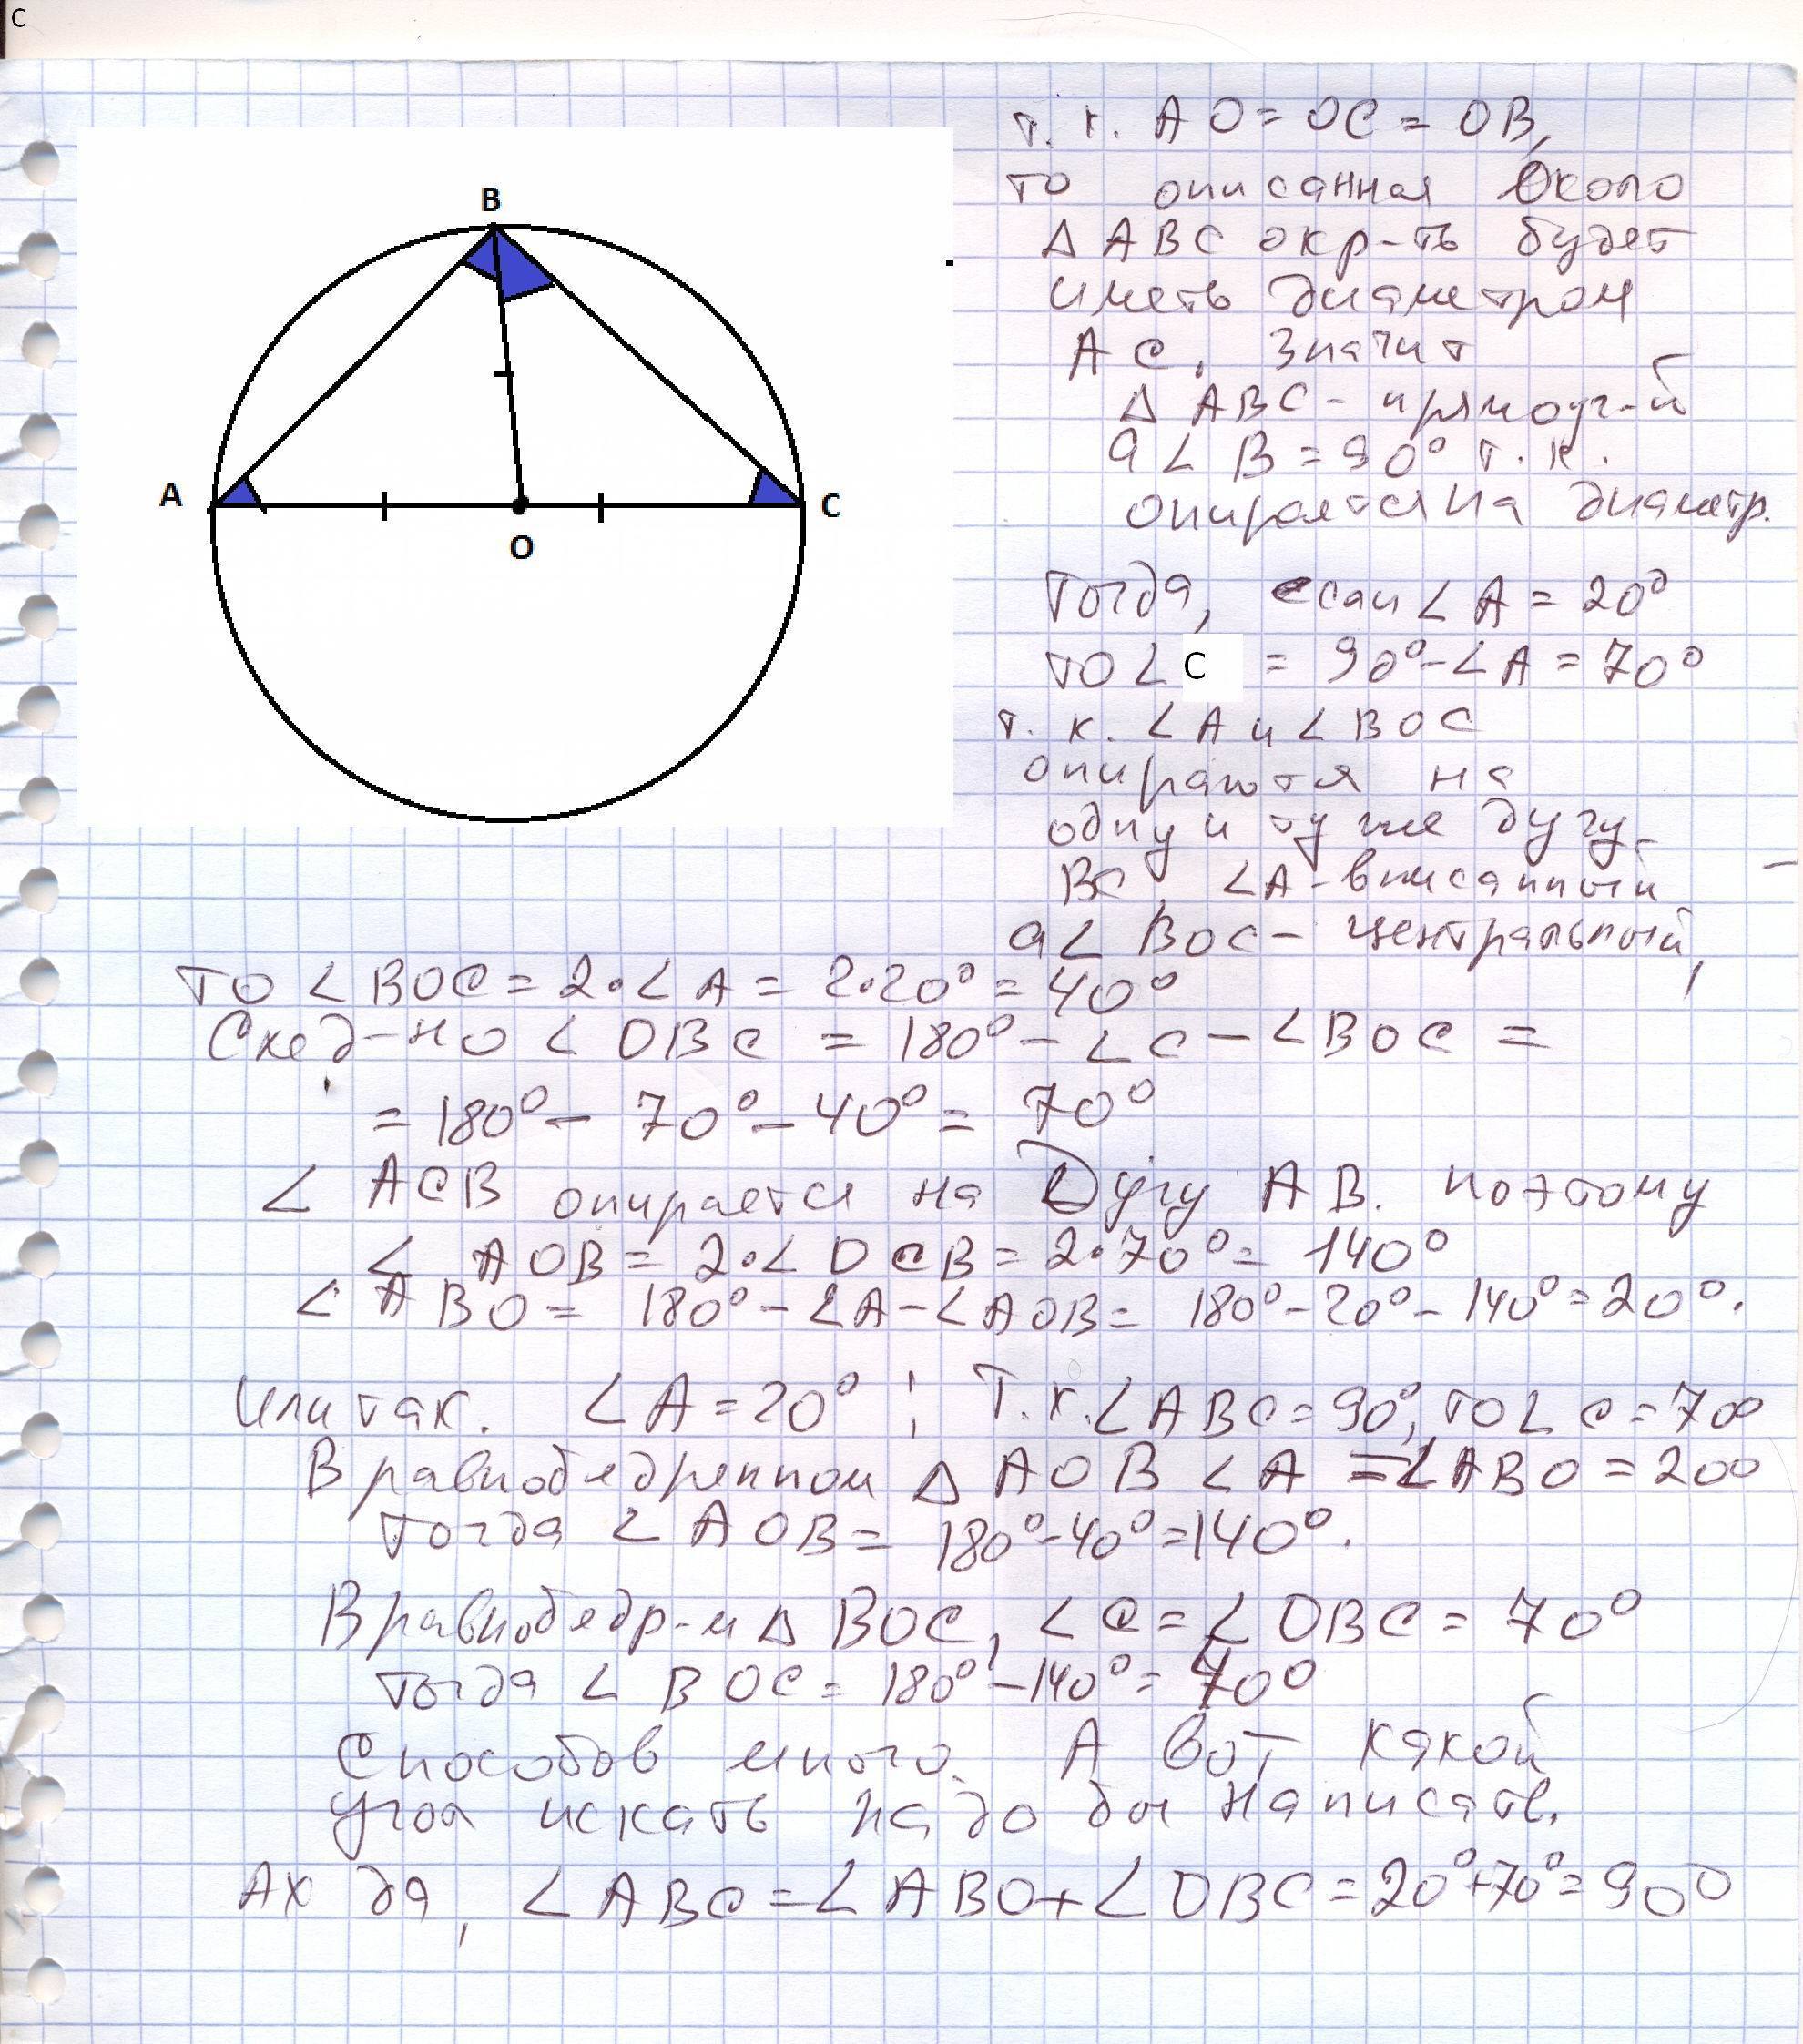 С
B
A
O
C
т.к. AO = OC = OB,
то описанная около
Δ ABC окр-ть будет
иметь диаметром
AC. Значит
Δ ABC - прямоуг-й
а ∠ B = 90° т.к.
опирается на диаметр.
Тогда, если ∠ A = 20°
то ∠ C = 90° - ∠ A = 70°
т.к. ∠ A и ∠ BOC
опираются на
одну и ту же дугу
BC, ∠A - вписанный
а ∠ BOC - центральный,
то ∠ BOC = 2·∠ A = 2·20° = 40°
След-но ∠ OBC = 180° - ∠C - ∠BOC =
= 180° - 70° - 40° = 70°
∠ ACB опирается на Дугу AB. поэтому
∠ AOB = 2·∠ OCB = 2·70° = 140°
∠ ABO = 180° - ∠A - ∠AOB = 180° - 20° - 140° = 20°.
Или так. ∠ A = 20° ; Т.к. ∠ ABC = 90°, то ∠ C = 70°
В равнобедренном Δ AOB ∠ A = ∠ ABO = 20°
тогда ∠ AOB = 180° - 40° = 140°.
В равнобедр-м Δ BOC, ∠ C = ∠ OBC = 70°
тогда ∠ BOC = 180° - 140° = 40°
Способов много. А вот какой
угол искать надо бы написать.
Ах да, ∠ ABC = ∠ ABO + ∠ OBC = 20° + 70° = 90°